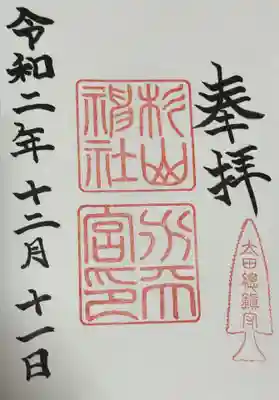 奉拝
太田總鎮守
杉山
神社
水天
宮印
令和二年十二月十一日